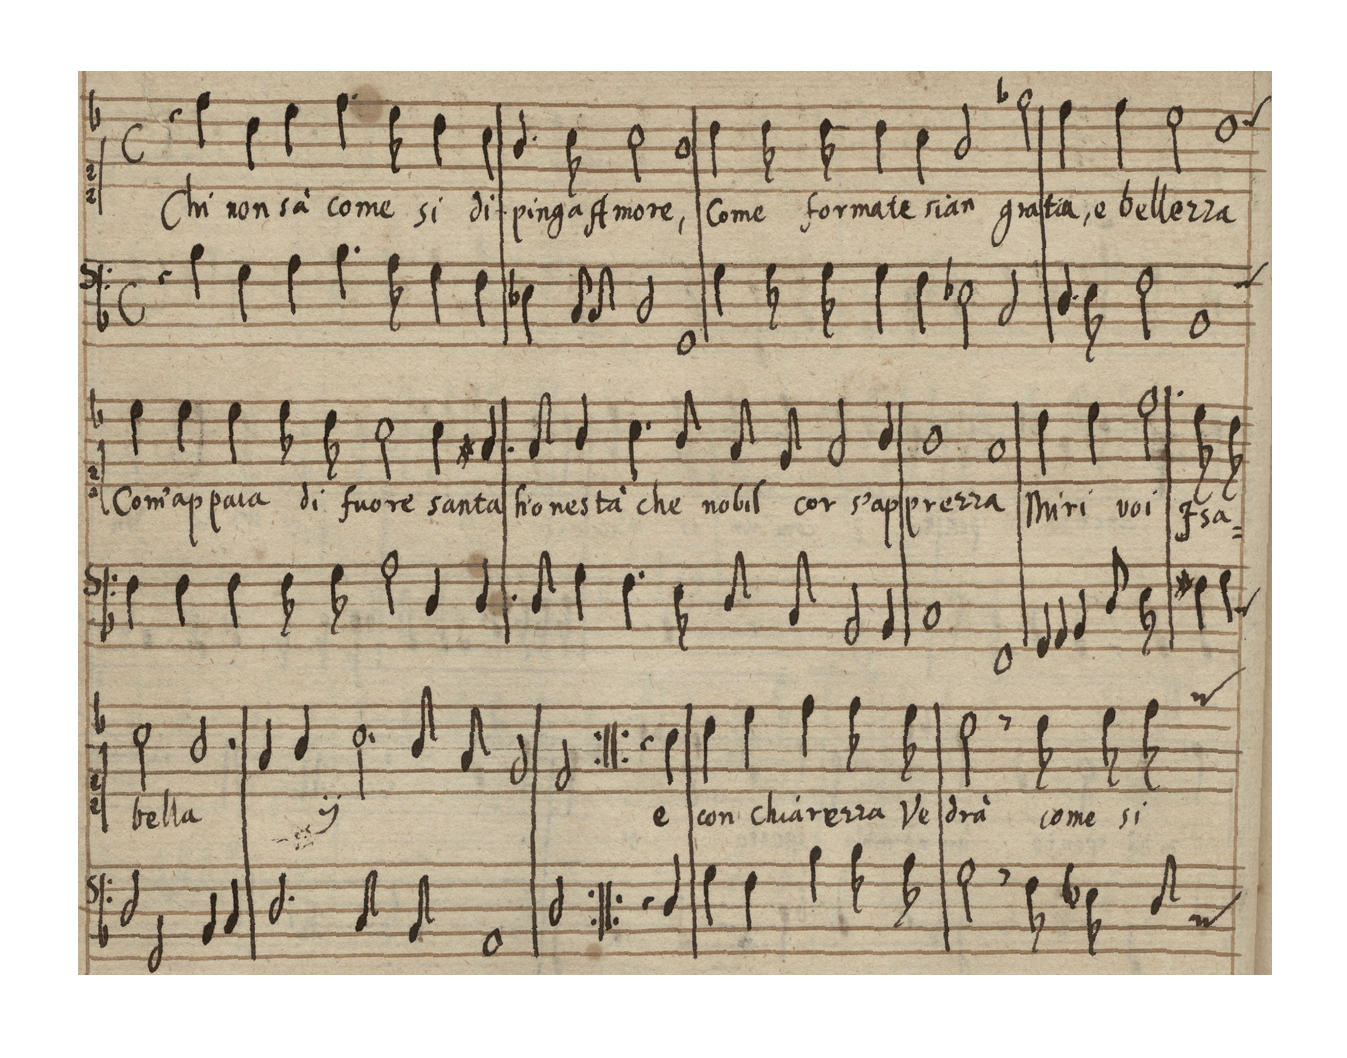 Chi non sà come si di-pinga Amore, Come formate sian gratia, e bellezza
Com'appaia di fuore santa honestà che nobil cor s'apprezza Miri voi Isa=
bella ij e con chiarezza Vedrà come si